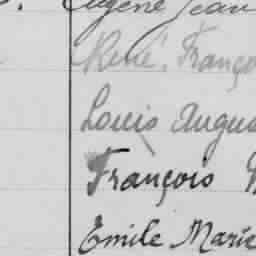 Eugène Jean
René, Franço
Louis Augu
François
Emile Marie